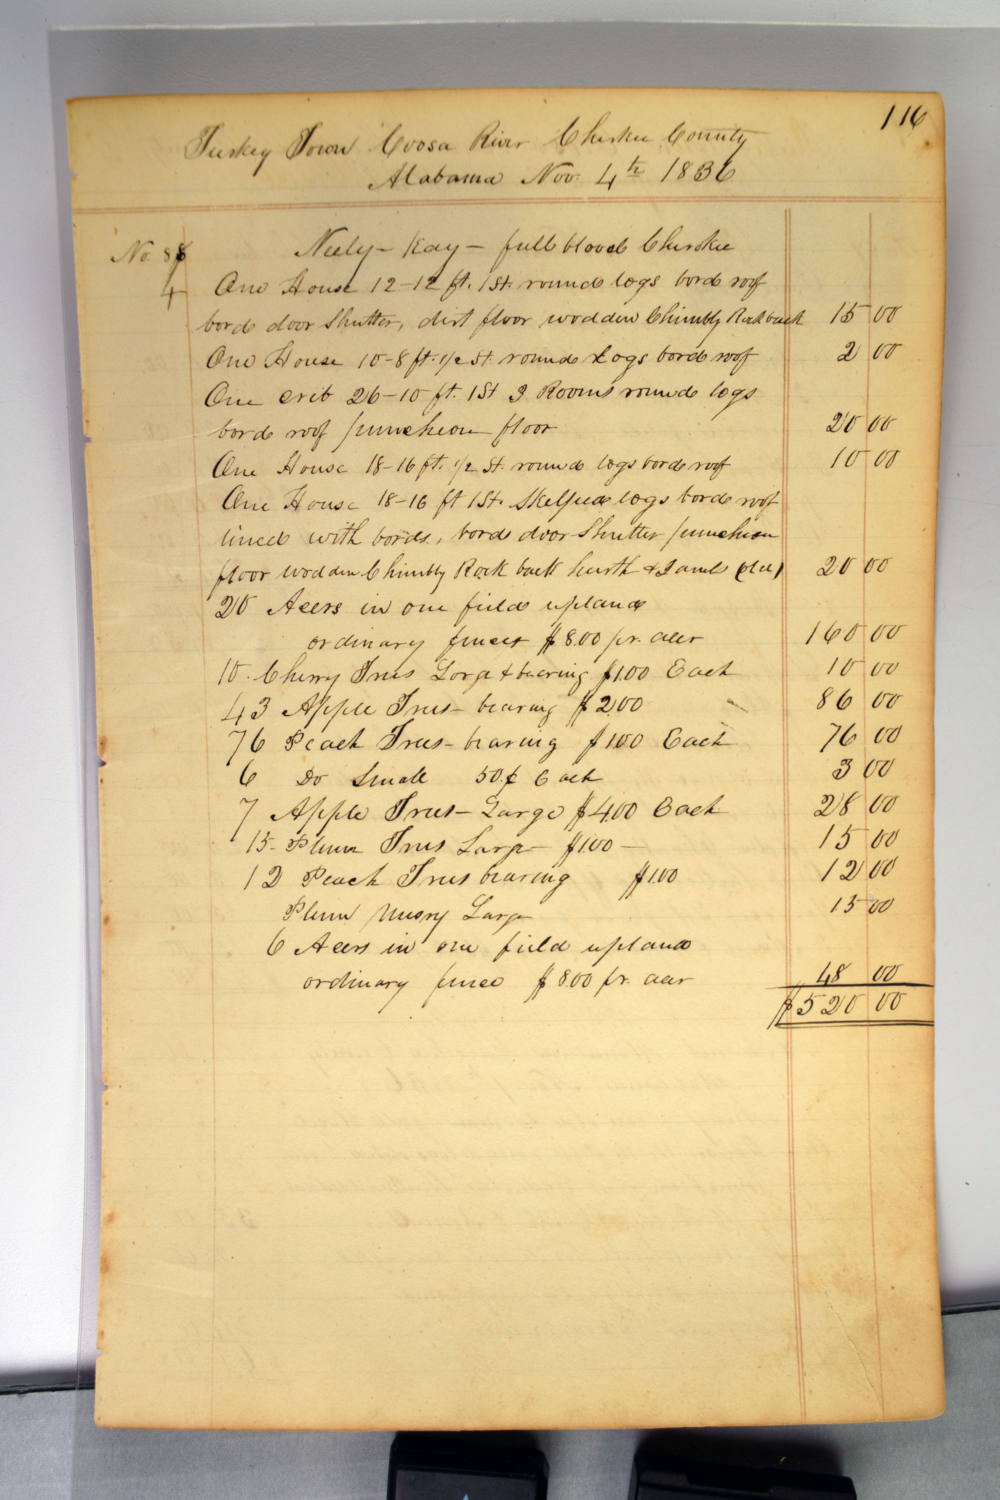 116
Turkey Town Coosa River Cherkee County
Alabama Nov. 4th 1836
No. 88 Neely - Kay - full blood Cherokee
4 One House 12-12 ft. 1 St. round logs bord roof
bord door Shutter, dirt floor wodden Chimbly Rock back 15 00
One House 10-8 ft. 1/2 St. round Logs bord roof 2 00
One crib 26-10 ft. 1 St 3 Rooms round logs
bord roof puncheon floor 20 00
One House 18-16 ft. 1/2 St. round logs bord roof 10 00
One House 18-16 ft 1 St. Skelped logs bord roof
lined with bords, bord door Shutter puncheon
floor wodden Chimbly Rock back hearth & Jambs (old) 20 00
20 Acers in one field upland
ordinary fences $8.00 pr. acer 160 00
10. Cherry Trees Large & bearing $1.00 Each 10 00
43 Apple Trees - bearing $2.00 86 00
76 Peach Trees - bearing $1.00 Each 76 00
6 Do Small 50.¢ Each 3 00
7 Apple Trees - Large $4.00 Each 28 00
15- Plum Trees Large - $1.00 - 15 00
12 Peach Trees bearing $1.00 12 00
Plum Nursry Large 15 00
6 Acers in one field upland
ordinary fence $8.00 pr. acer 48 00
$520 00